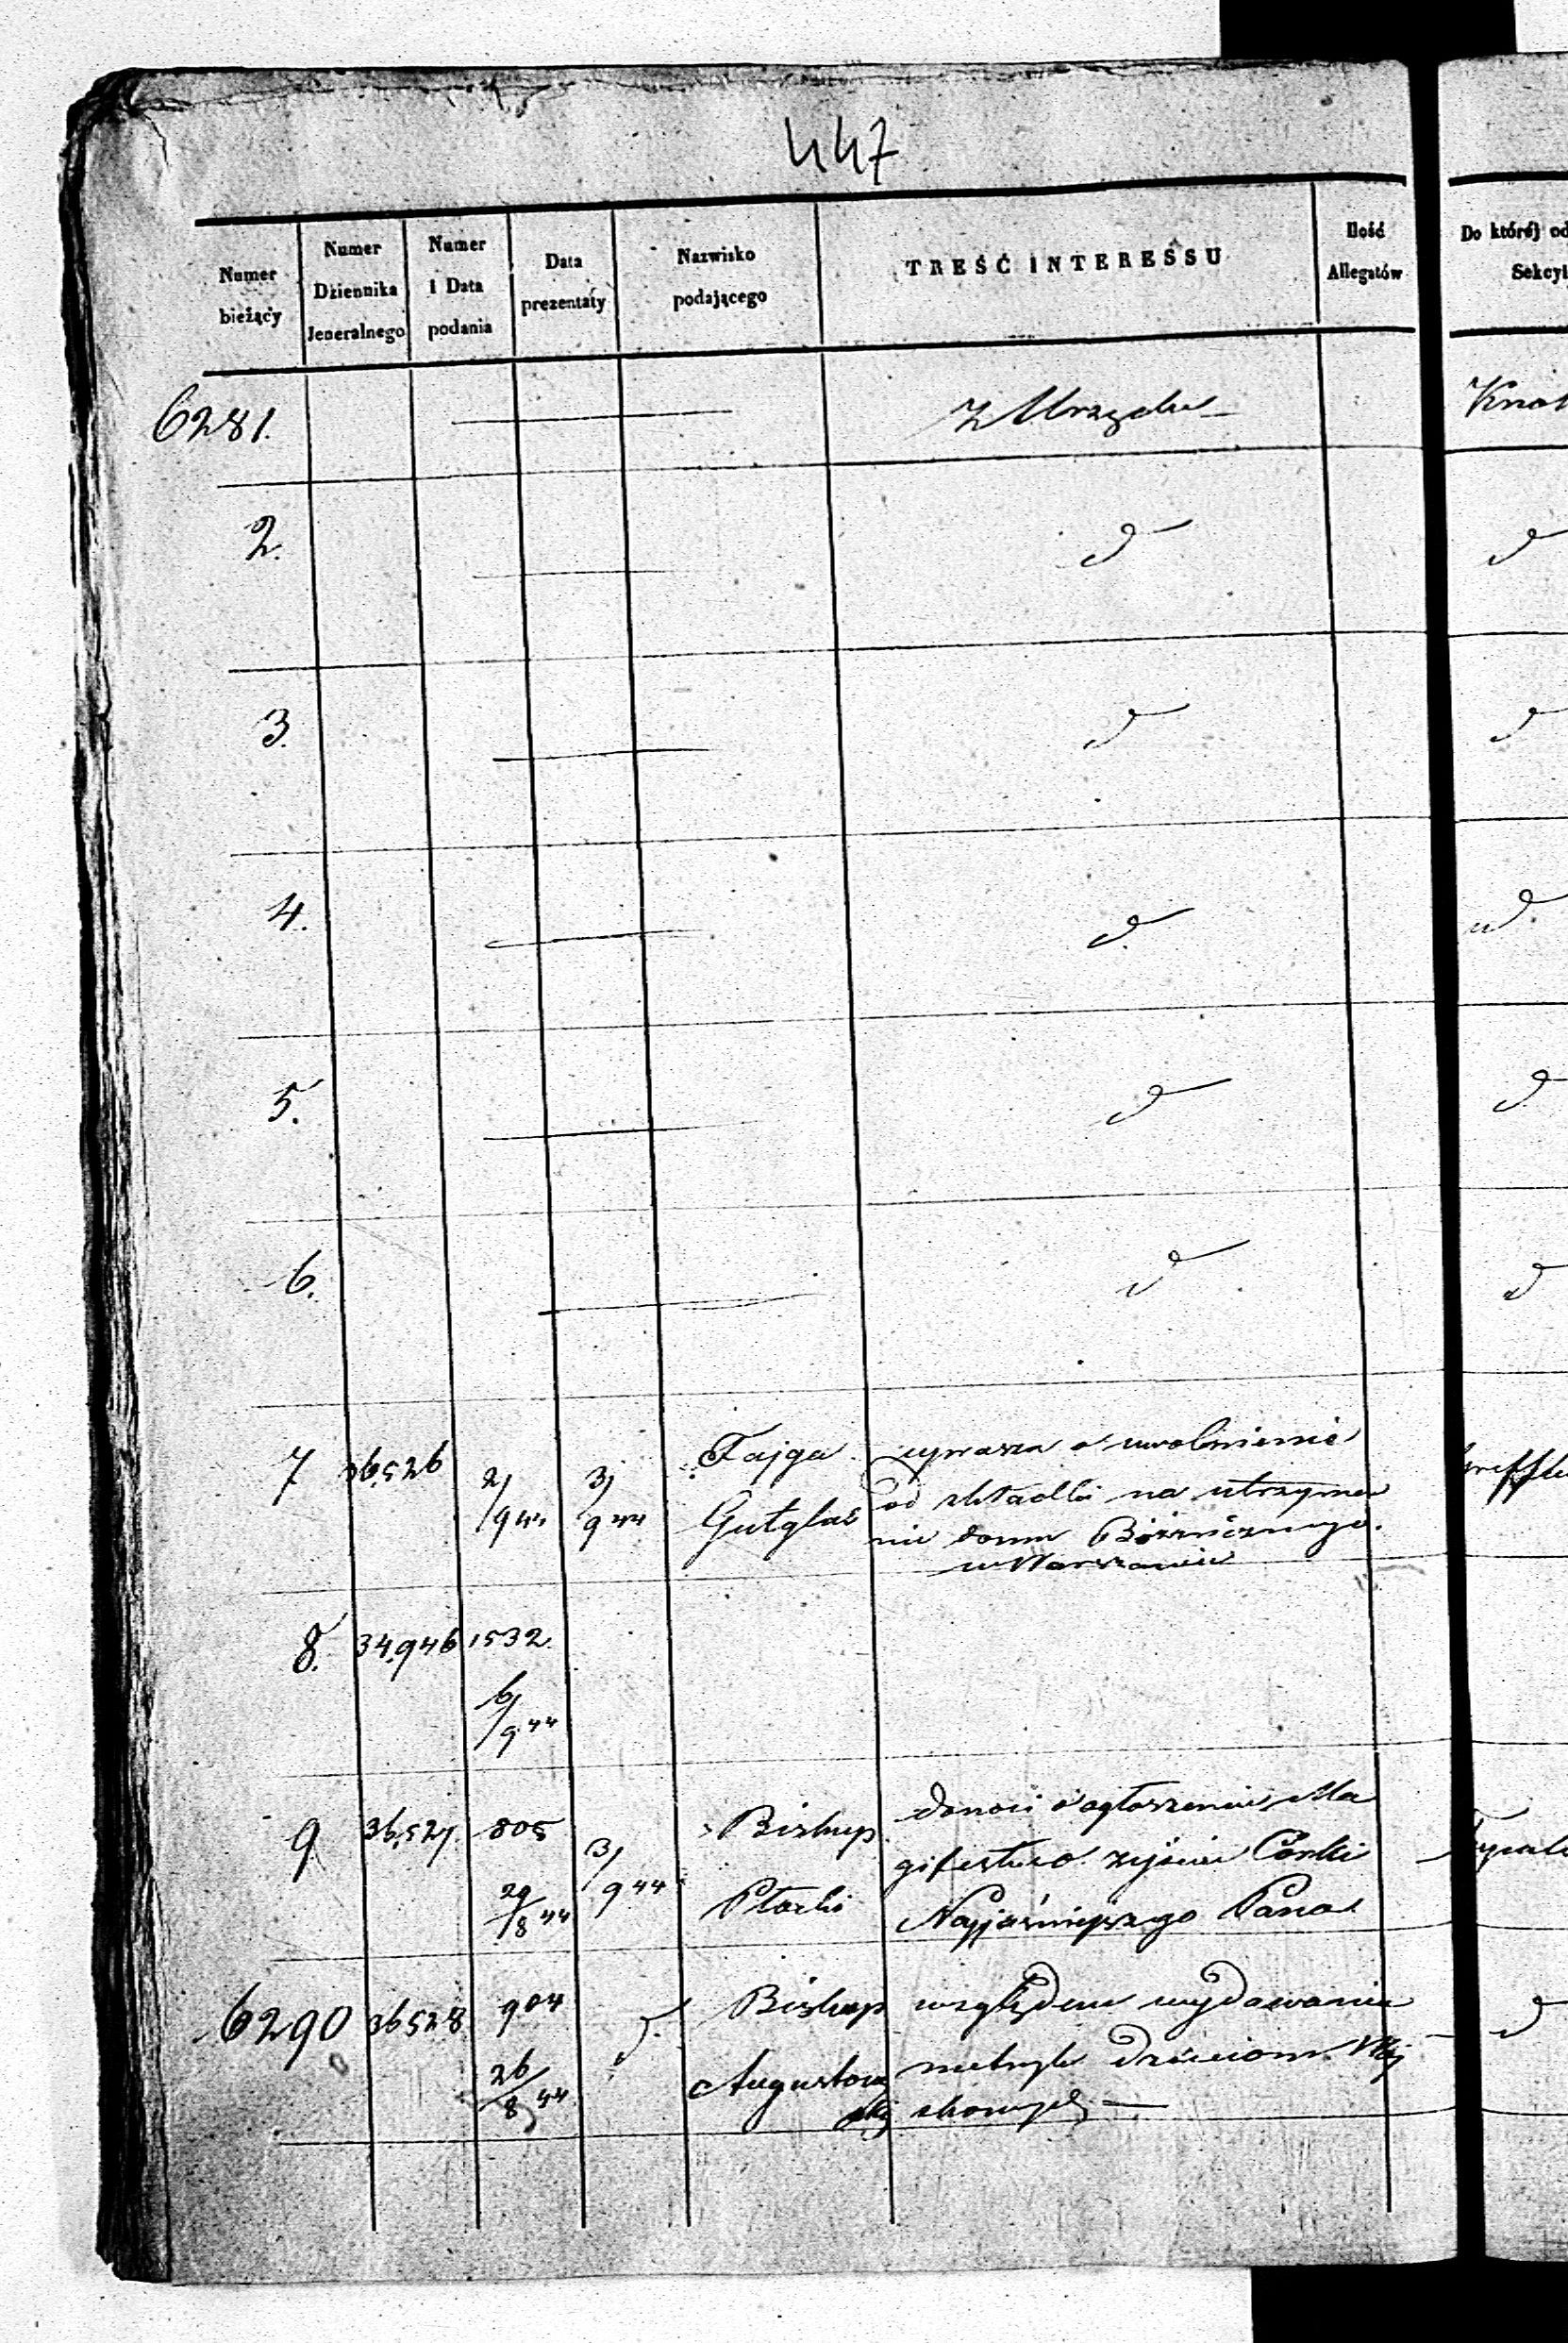 447
Numer bieżący
Numer Dziennika Jeneralnego
Numer i Data podania
Data prezentaty
Nazwisko podającego
TREŚĆ INTERESSU
Ilość Allegatów
Do której od
Sekcyi
6281. Z Urzędu
2. d d
3. d d
4. d. d.
5. d d
6. d d
7 36,526 2/9 44 3/9 44 Fajga Gutglas
uprasza o uwolnienie
od składki na utrzyma
nie domu Bożniczego
w Warszawie
8. 34,946 1532. 6/9 44
9 36,527. 805 29/8 44 3/9 44 Biskup Płocki
donosi o ogłoszeniu Ma
nifestu o zejściu Córki
Najjaśniejszego Pana
6290 36528 904 26/8 44 d. Biskup Augustow
ski
względem wydawania
metryk dzieciom Woj
skowych d